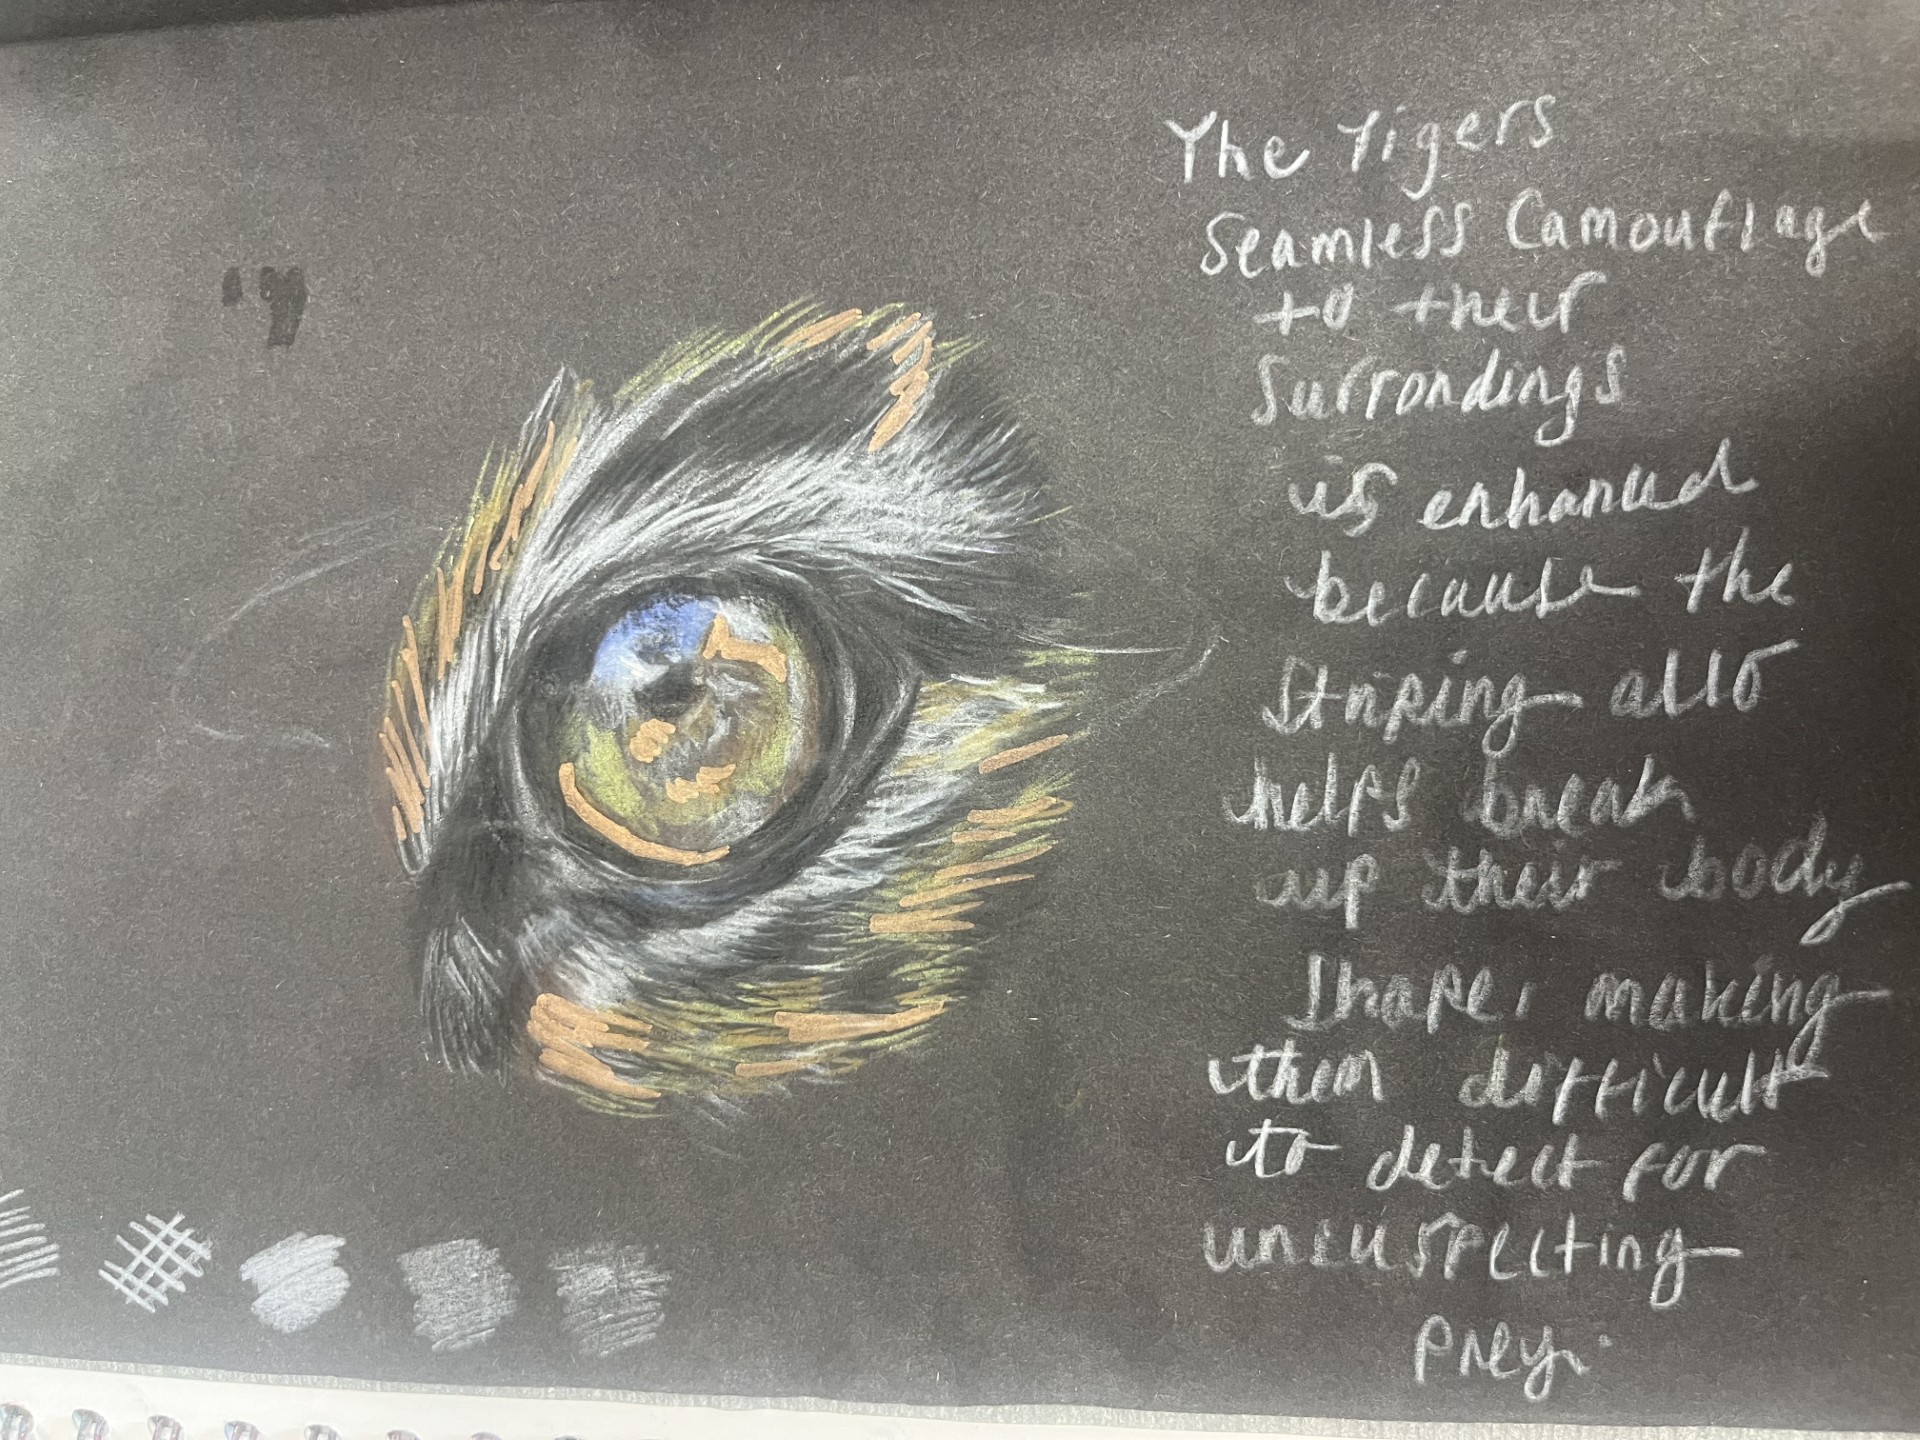 The Tigers
Seamless Camouflage
to their
Surrondings
is enhanced
because the
Striping also
helps break
up their body
Shape, making
them difficult
to detect for
unsuspecting
prey.